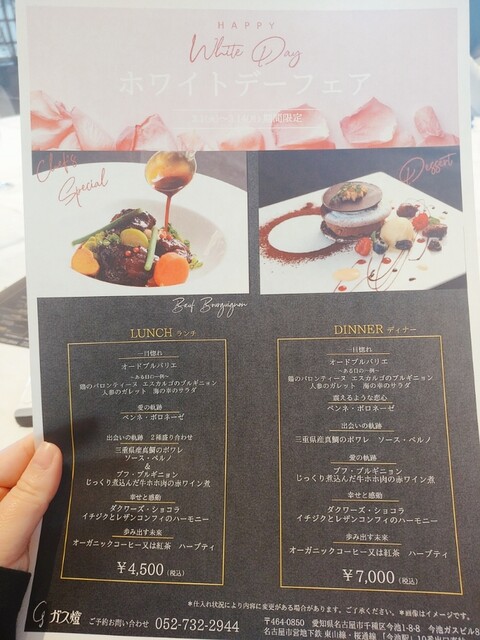 HAPPY
White Day
ホワイトデーフェア
期間限定
Chef's
Special
Dessert
Beuf Bourguignon
LUNCH ランチ
一目惚れ
オードブルバリエ
～ある日の一例～
鶏のバロンティーヌ エスカルゴのブルギニョン
人参のガレット 海の幸のサラダ
愛の軌跡
ペンネ・ボロネーゼ
出会いの軌跡 2種盛り合わせ
三重県産真鯛のポワレ
ソース・ベルノ
&
ブフ・ブルギニョン
じっくり煮込んだ牛ホホ肉の赤ワイン煮
幸せと感動
ダクワーズ・ショコラ
イチジクとレザンコンフィのハーモニー
歩み出す未来
オーガニックコーヒー又は紅茶 ハーブティ
￥4,500(税込)
DINNER ディナー
一目惚れ
オードブルバリエ
～ある日の一例～
鶏のバロンティーヌ エスカルゴのブルギニョン
人参のガレット 海の幸のサラダ
震えるような恋心
ペンネ・ボロネーゼ
出会いの軌跡
三重県産真鯛のポワレ ソース・ベルノ
愛の軌跡
ブフ・ブルギニョン
じっくり煮込んだ牛ホホ肉の赤ワイン煮
幸せと感動
ダクワーズ・ショコラ
イチジクとレザンコンフィのハーモニー
歩み出す未来
オーガニックコーヒー又は紅茶 ハーブティ
￥7,000(税込)
*仕入れ状況により内容に変更がある場合があります、ご了承ください。*画像はイメージです。
G ガス燈 ご予約お問い合わせ 052-732-2944
〒464-0850 愛知県名古屋市千種区今池1-8-8 今池ガスビル8
名古屋市営地下鉄 東山線・桜通線 「今池駅」10番出口直結